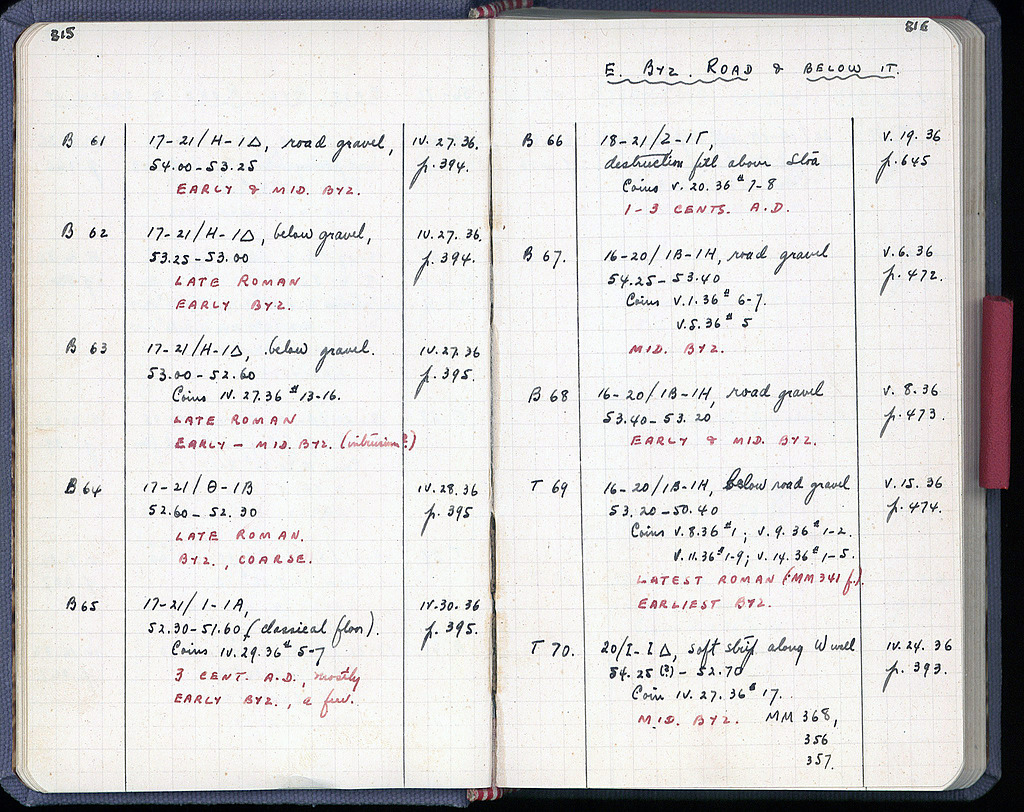 815
B 61 17-21/H-1Δ, road gravel, IV.27.36.
54.00-53.25 p.394.
EARLY & MID. BYZ.
B 62 17-21/H-1Δ, below gravel, IV.27.36.
53.25-53.00 p.394.
LATE ROMAN
EARLY BYZ.
B 63 17-21/H-1Δ, below gravel. IV.27.36
53.00-52.60 p.395.
Coins IV.27.36 # 13-16.
LATE ROMAN
EARLY - MID. BYZ. (intrusion?)
B 64 17-21/Θ-1B IV.28.36
52.60-52.30 p.395
LATE ROMAN.
BYZ., COARSE.
B 65 17-21/I-1A, IV.30.36
52.30-51.60 (classical floor). p.395.
Coins IV.29.36 # 5-7
3 CENT. A.D., mostly
EARLY BYZ., a few.
816
E. BYZ. ROAD & BELOW IT.
B 66 18-21/Z-1Γ, V.19.36
destruction fill above Stoa p.645
Coins V.20.36 # 7-8
1-3 CENTS. A.D.
B 67. 16-20/1B-1H, road gravel V.6.36
54.25-53.40 p.472.
Coins V.1.36 # 6-7.
V.5.36 # 5
MID. BYZ.
B 68 16-20/1B-1H, road gravel V.8.36
53.40-53.20 p.473.
EARLY & MID. BYZ.
T 69 16-20/1B-1H, below road gravel V.15.36
53.20-50.40 p.474.
Coins V.8.36 # 1; V.9.36 # 1-2.
V.11.36 # 1-9; V.14.36 # 1-5.
LATEST ROMAN (:MM 341 f.).
EARLIEST BYZ.
T 70. 20/I-IΔ, soft strip along W wall IV.24.36
54.25(?)-52.70 p.393.
Coin IV.27.36 # 17.
MID. BYZ. MM 368,
356
357.